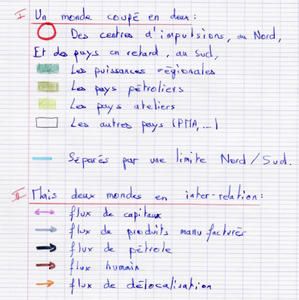 I Un monde coupé en deux :
Des centres d'impulsions, au Nord,
Et des pays en retard, au Sud,
Les puissances régionales
Les pays pétroliers
Les pays ateliers
Les autres pays (PMA,...)
Séparés par une limite Nord/Sud.
II Mais deux mondes en inter-relation :
flux de capitaux
flux de produits manufacturés
flux de pétrole
flux humain
flux de délocalisation